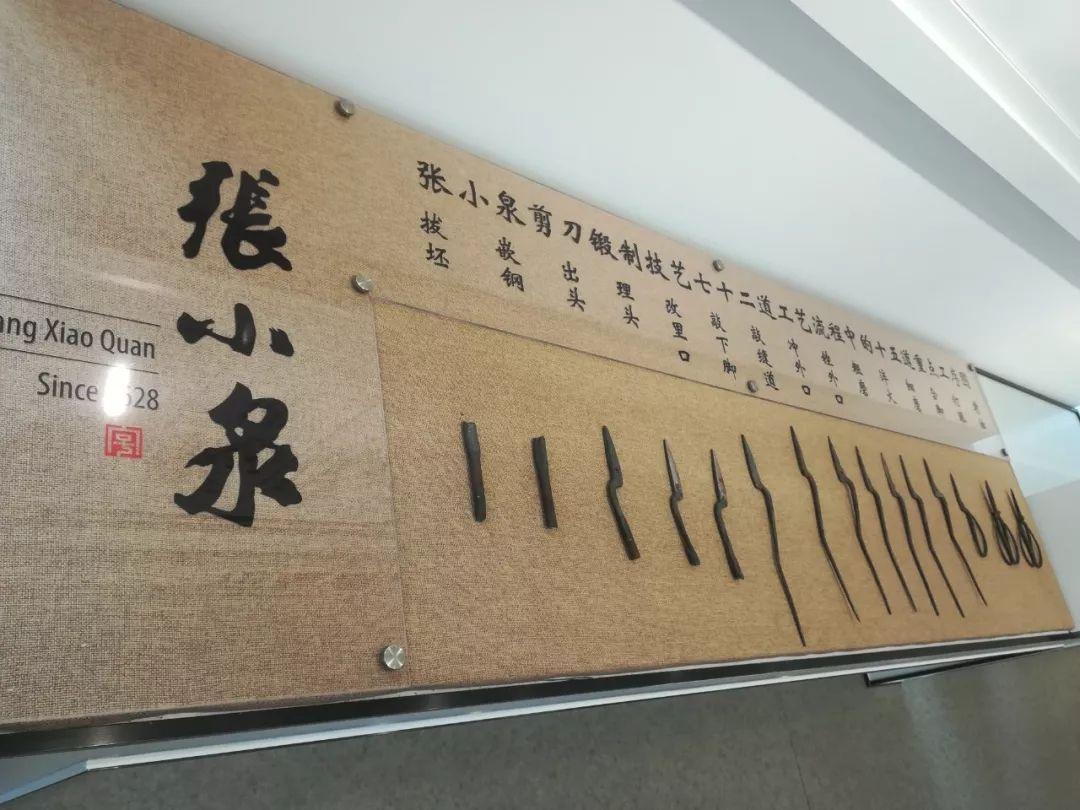 張小泉
ang Xiao Quan
Since 1628
张小泉剪刀锻制技艺七十二道工艺流程中的十五道重点工序图
拔坯
嵌钢
出头
理头
改里口
敲下脚
敲缝道
冲外口